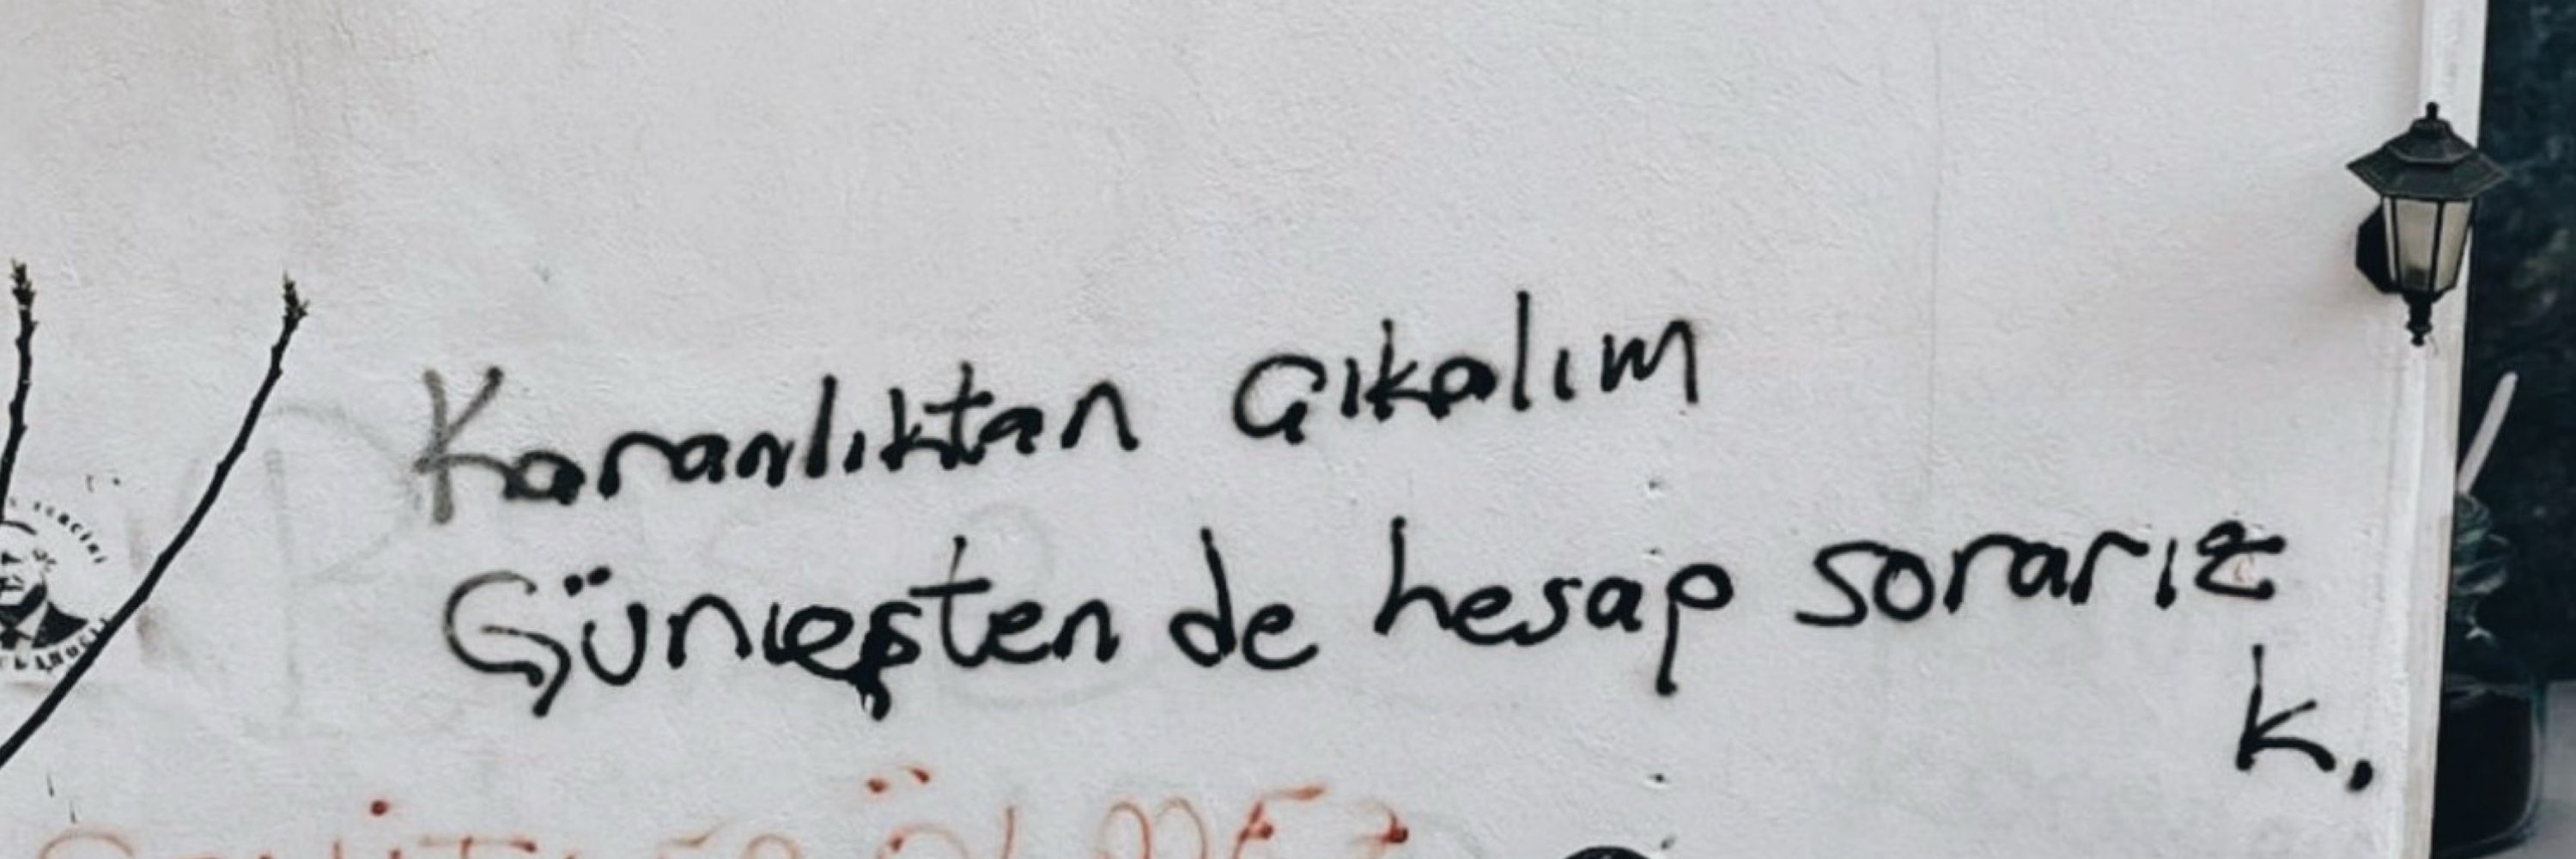 Karanlıktan çıkalım
Güneşten de hesap sorarız
K.